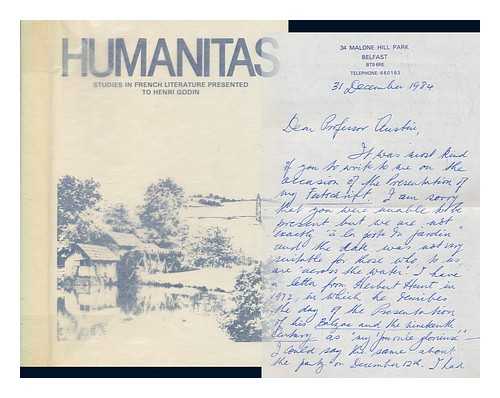 HUMANITAS
STUDIES IN FRENCH LITERATURE PRESENTED
TO HENRI GODIN
34 MALONE HILL PARK
BELFAST
BT9 6RE
TELEPHONE
31 December 1984
Dear Professor Austin,
It was most kind
of you to write to me on the
occasion of the Presentation of
my Festschrift. I am sorry
that you were unable to be
present but we are not
exactly "à la porte du jardin"
and the date was not very
suitable for those who to us
are 'across the water'. I have
a letter from Herbert Hunt in
1972, in which he describes
the day of the Presentation
of his Balzac and the nineteenth
century as 'my "journée glorieuse"' —
I could say the same about
the party on December 12th. I had